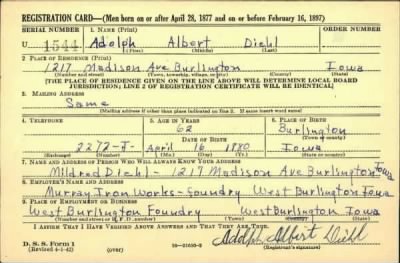 REGISTRATION CARD—(Men born on or after April 28, 1877 and on or before February 16, 1897)
SERIAL NUMBER 1. NAME (Print) ORDER NUMBER
U 1544 Adolph Albert Diehl
(First) (Middle) (Last)
2. PLACE OF RESIDENCE (Print)
1217 Madison Ave Burlington Iowa
(Number and street) (Town, township, village, or city) (County) (State)
[THE PLACE OF RESIDENCE GIVEN ON THE LINE ABOVE WILL DETERMINE LOCAL BOARD
JURISDICTION; LINE 2 OF REGISTRATION CERTIFICATE WILL BE IDENTICAL]
3. MAILING ADDRESS
Same
[Mailing address if other than place indicated on line 2. If same insert word same]
4. TELEPHONE 5. AGE IN YEARS 6. PLACE OF BIRTH
62 Burlington
DATE OF BIRTH (Town or county)
2272-J- April 16 1880 Iowa
(Exchange) (Number) (Mo.) (Day) (Yr.) (State or country)
7. NAME AND ADDRESS OF PERSON WHO WILL ALWAYS KNOW YOUR ADDRESS
Mildred Diehl - 1217 Madison Ave Burlington Iowa
8. EMPLOYER'S NAME AND ADDRESS
Murray Iron Works-Foundry West Burlington Iowa
9. PLACE OF EMPLOYMENT OR BUSINESS
West Burlington Foundry West Burlington Iowa
(Number and street or R. F. D. number) (Town) (County) (State)
I AFFIRM THAT I HAVE VERIFIED ABOVE ANSWERS AND THAT THEY ARE TRUE.
D. S. S. Form 1 Adolph Albert Diehl
(Revised 4-1-42) (over) (Registrant's signature)